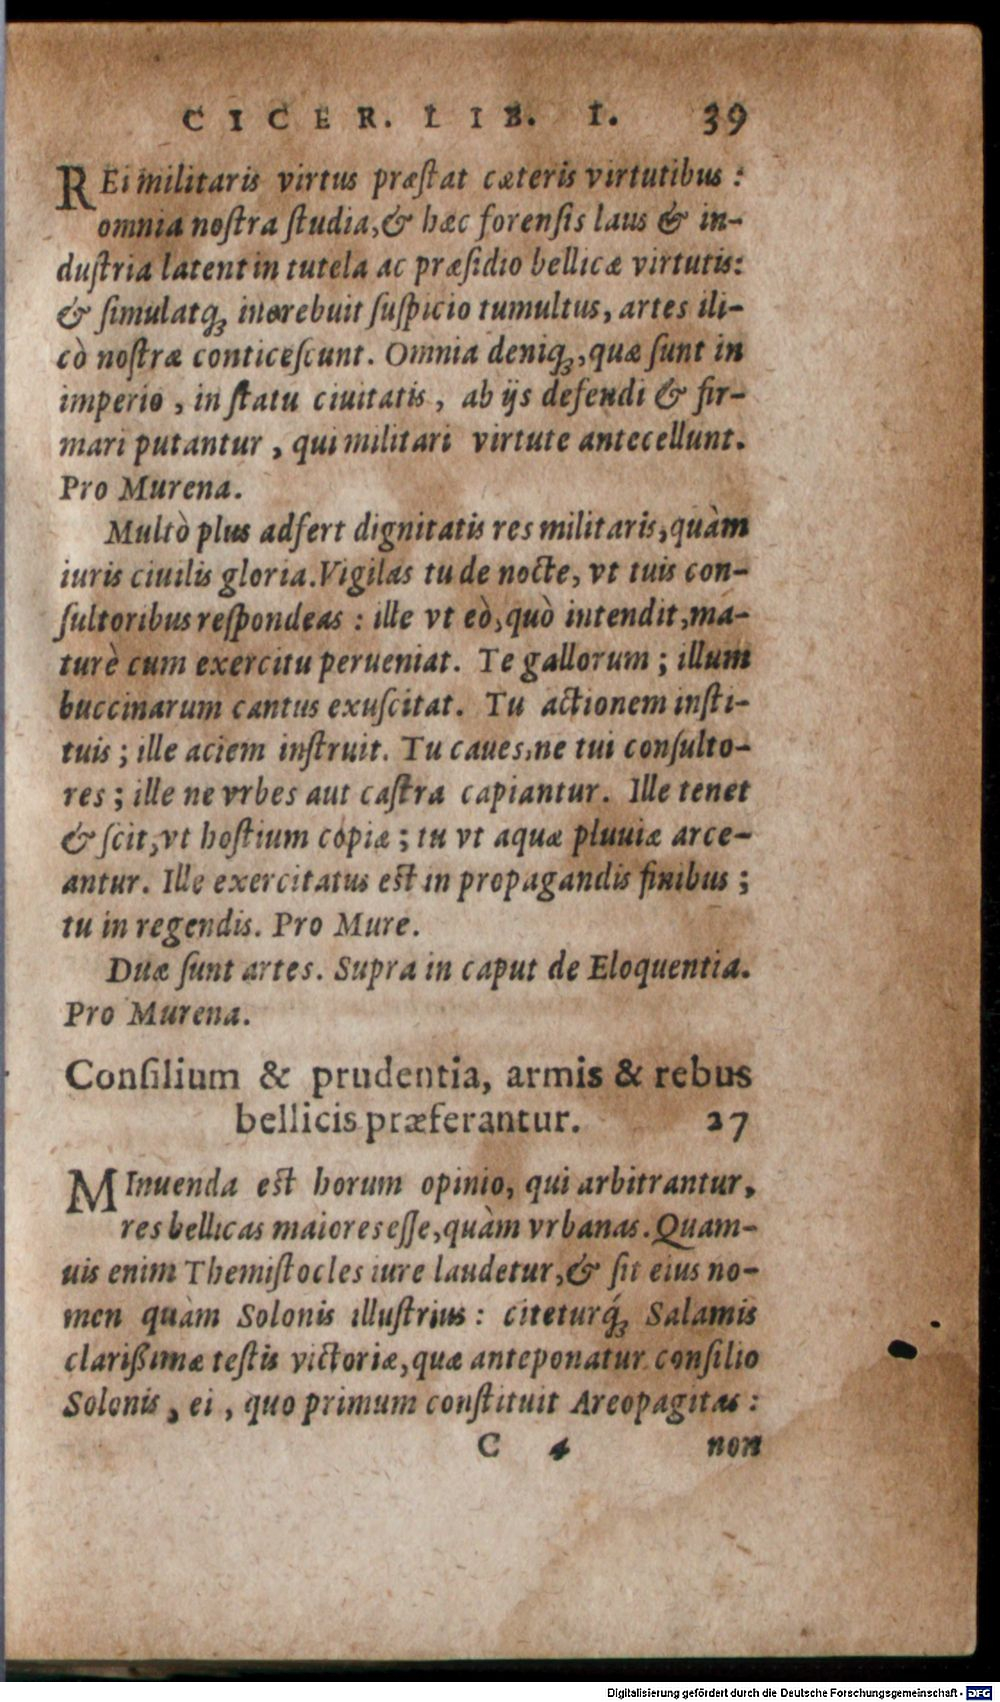 CICER. LIB. I. 39
REi militaris virtus præſtat cæteris virtutibus :
omnia noſtra ſtudia,& hæc forenſis laus & in-
duſtria latent in tutela ac præſidio bellicæ virtutis:
& ſimulatq; increbuit ſuſpicio tumultus, artes ili-
cò noſtræ conticeſcunt. Omnia deniq;, quæ ſunt in
imperio , in ſtatu ciuitatis , ab ijs defendi & fir-
mari putantur , qui militari virtute antecellunt.
Pro Murena.
Multò plus adfert dignitatis res militaris,quàm
iuris ciuilis gloria.Vigilas tu de nocte, vt tuis con-
ſultoribus reſpondeas : ille vt eò,quò intendit,ma-
turè cum exercitu perueniat. Te gallorum ; illum
buccinarum cantus exuſcitat. Tu actionem inſti-
tuis ; ille aciem inſtruit. Tu caues,ne tui conſulto-
res ; ille ne vrbes aut caſtra capiantur. Ille tenet
& ſcit,vt hoſtium copiæ ; tu vt aquæ pluuiæ arce-
antur. Ille exercitatus eſt in propagandis finibus ;
tu in regendis. Pro Mure.
Duæ ſunt artes. Supra in caput de Eloquentia.
Pro Murena.
Conſilium & prudentia, armis & rebus
bellicis præferantur. 27
MInuenda eſt horum opinio, qui arbitrantur,
res bellicas maiores eſſe,quàm vrbanas.Quam-
uis enim Themiſtocles iure laudetur,& ſit eius no-
men quàm Solonis illuſtrius : citeturq́; Salamis
clarißimæ teſtis victoriæ,quæ anteponatur conſilio
Solonis , ei , quo primum conſtituit Areopagitas :
C 4 non
Digitalisierung gefördert durch die Deutsche Forschungsgemeinschaft - DFG